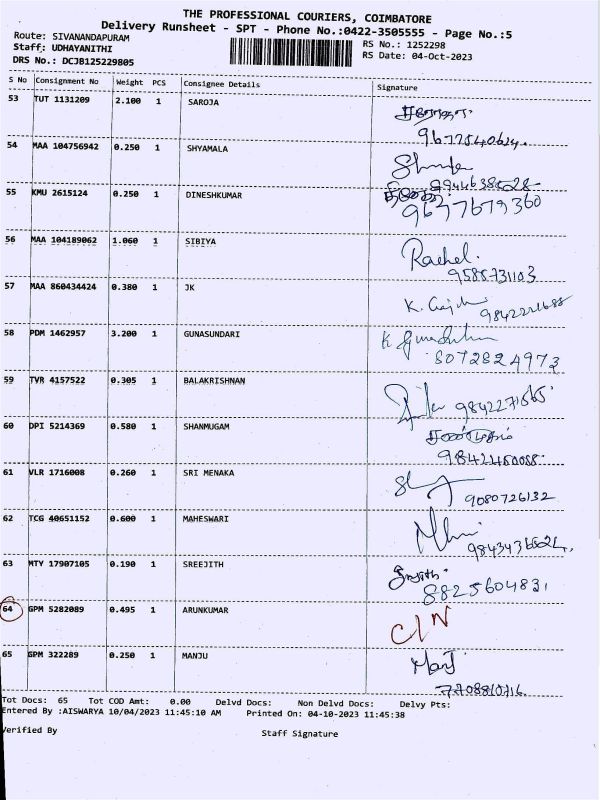 THE PROFESSIONAL COURIERS, COIMBATORE
Delivery Runsheet - SPT - Phone No.:0422-3505555 - Page No.:5
Route: SIVANANDAPURAM
RS No.: 1252298
Staff: UDHAYANITHI
RS Date: 04-Oct-2023
DRS No.: DCJB125229805
S No Consignment No Weight PCS Consignee Details Signature
53 TUT 1131209 2.100 1 SAROJA
54 MAA 104756942 0.250 1 SHYAMALA
55 KMU 2615124 0.250 1 DINESHKUMAR
9677679360
56 MAA 104189062 1.060 1 SIBIYA Rachel.
9588731103
57 MAA 860434424 0.380 1 JK
58 PDM 1462957 3.200 1 GUNASUNDARI
8072824973
59 TVR 4157522 0.305 1 BALAKRISHNAN
60 DPI 5214369 0.580 1 SHANMUGAM
61 VLR 1716008 0.260 1 SRI MENAKA
9080726132
62 TCG 40651152 0.600 1 MAHESWARI
63 MTY 17907105 0.190 1 SREEJITH
8825604831
64 GPM 5282089 0.495 1 ARUNKUMAR C/N
65 GPM 322289 0.250 1 MANJU
Tot Docs: 65 Tot COD Amt: 0.00 Delvd Docs: Non Delvd Docs: Delvy Pts:
Entered By :AISWARYA 10/04/2023 11:45:10 AM Printed On: 04-10-2023 11:45:38
Verified By Staff Signature